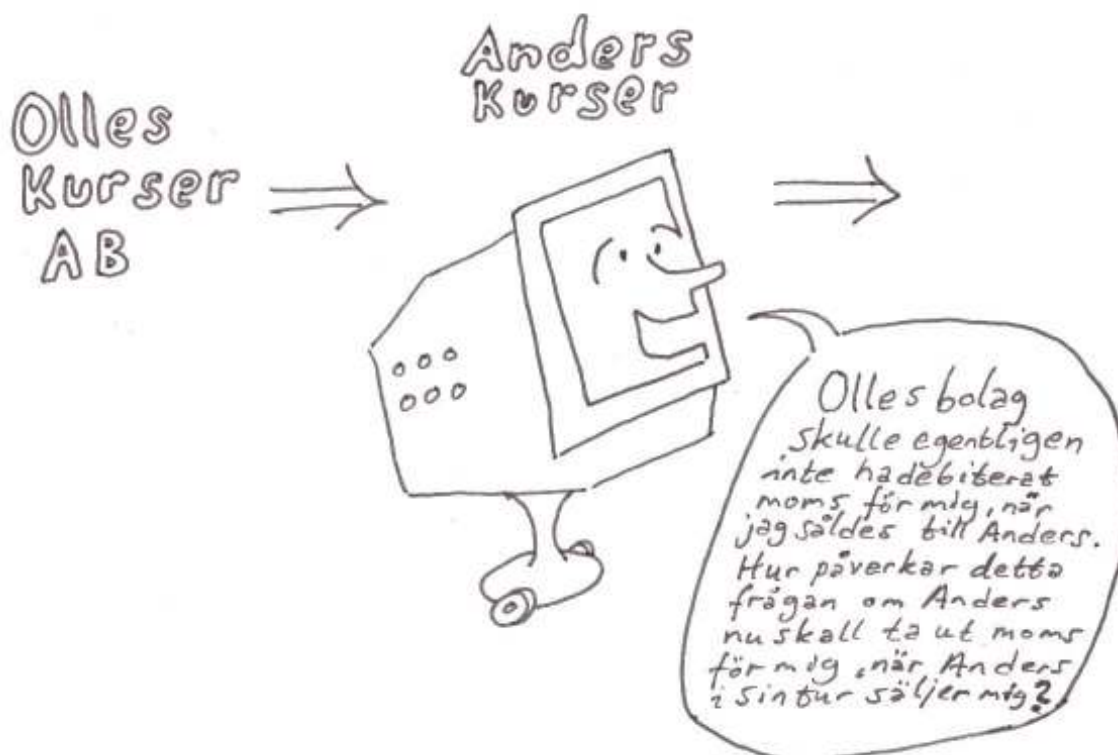 Olles
Kurser
AB
Anders
Kurser
Olles bolag
skulle egentligen
inte ha debiterat
moms för mig, när
jag såldes till Anders.
Hur påverkar detta
frågan om Anders
nu skall ta ut moms
för mig, när Anders
i sin tur säljer mig?